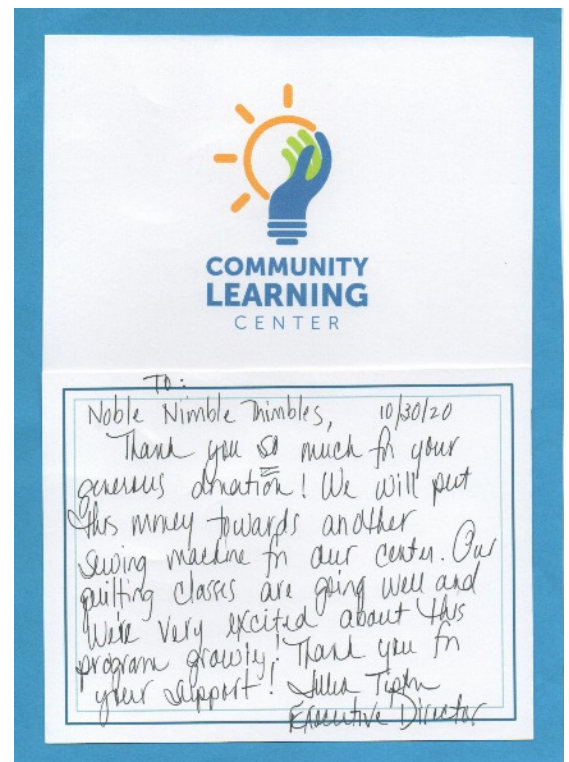 COMMUNITY
LEARNING
CENTER
TO:
Noble Nimble Thimbles, 10/30/20
Thank you so much for your
generous donation! We will put
this money towards another
sewing machine for our center. Our
quilting classes are going well and
we're very excited about this
program growing! Thank you for
your support!
Executive Director